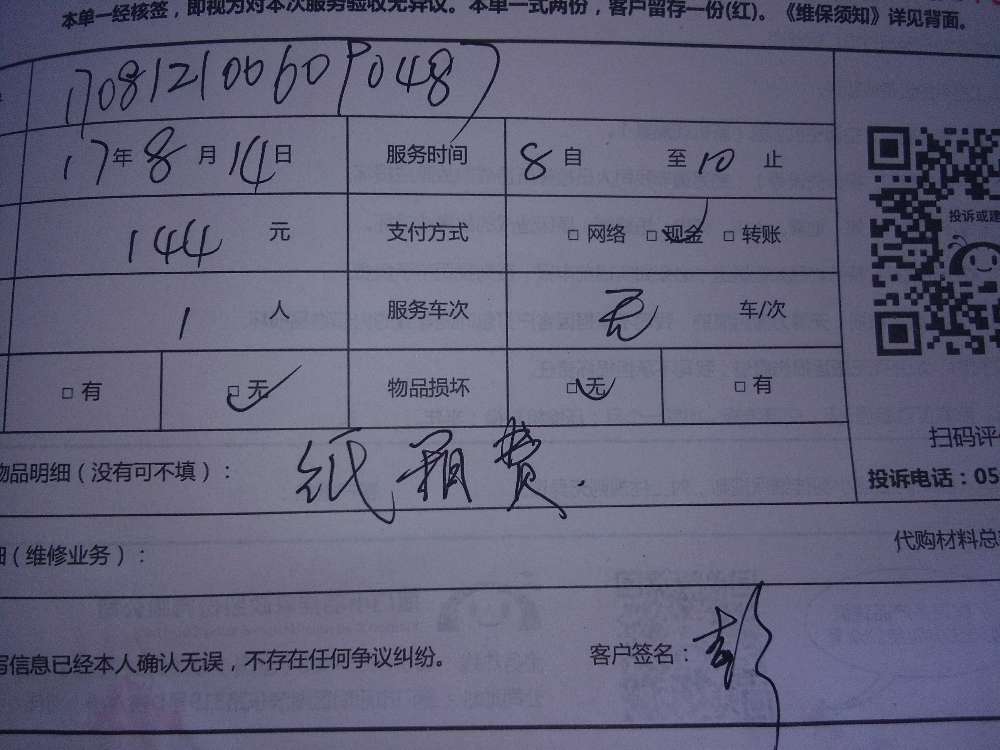 本单一经核签，即视为对本次服务验收无异议。本单一式两份，客户留存一份(红)。《维保须知》详见背面。
17年8月14日 服务时间 8自 至10止
144 元 支付方式 □网络 □现金 □转账
1 人 服务车次 无 车/次
□有 □无 物品损坏 □无 □有
投诉或建
扫码评
物品明细（没有可不填）： 纸箱费.
投诉电话：05
细（维修业务）： 代购材料总
写信息已经本人确认无误，不存在任何争议纠纷。 客户签名：彭